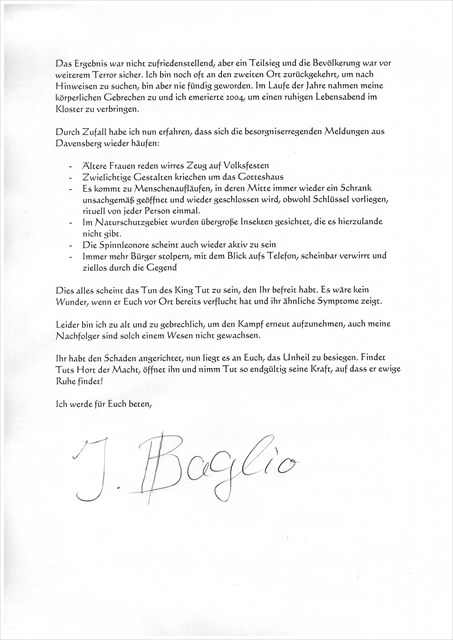 Das Ergebnis war nicht zufriedenstellend, aber ein Teilsieg und die Bevölkerung war vor
weiterem Terror sicher. Ich bin noch oft an den zweiten Ort zurückgekehrt, um nach
Hinweisen zu suchen, bin aber nie fündig geworden. Im Laufe der Jahre nahmen meine
körperlichen Gebrechen zu und ich emerierte 2004, um einen ruhigen Lebensabend im
Kloster zu verbringen.
Durch Zufall habe ich nun erfahren, dass sich die besorgniserregenden Meldungen aus
Davensberg wieder häufen:
- Ältere Frauen reden wirres Zeug auf Volksfesten
- Zwielichtige Gestalten kriechen um das Gotteshaus
- Es kommt zu Menschenaufläufen, in deren Mitte immer wieder ein Schrank
unsachgemäß geöffnet und wieder geschlossen wird, obwohl Schlüssel vorliegen,
rituell von jeder Person einmal.
- Im Naturschutzgebiet wurden übergroße Insekten gesichtet, die es hierzulande
nicht gibt.
- Die Spinnleonore scheint auch wieder aktiv zu sein
- Immer mehr Bürger stolpern, mit dem Blick aufs Telefon, scheinbar verwirrt und
ziellos durch die Gegend
Dies alles scheint das Tun des King Tut zu sein, den Ihr befreit habt. Es wäre kein
Wunder, wenn er Euch vor Ort bereits verflucht hat und ihr ähnliche Symptome zeigt.
Leider bin ich zu alt und zu gebrechlich, um den Kampf erneut aufzunehmen, auch meine
Nachfolger sind solch einem Wesen nicht gewachsen.
Ihr habt den Schaden angerichtet, nun liegt es an Euch, das Unheil zu besiegen. Findet
Tuts Hort der Macht, öffnet ihn und nimm Tut so endgültig seine Kraft, auf dass er ewige
Ruhe findet!
Ich werde für Euch beten,
J. Baglio